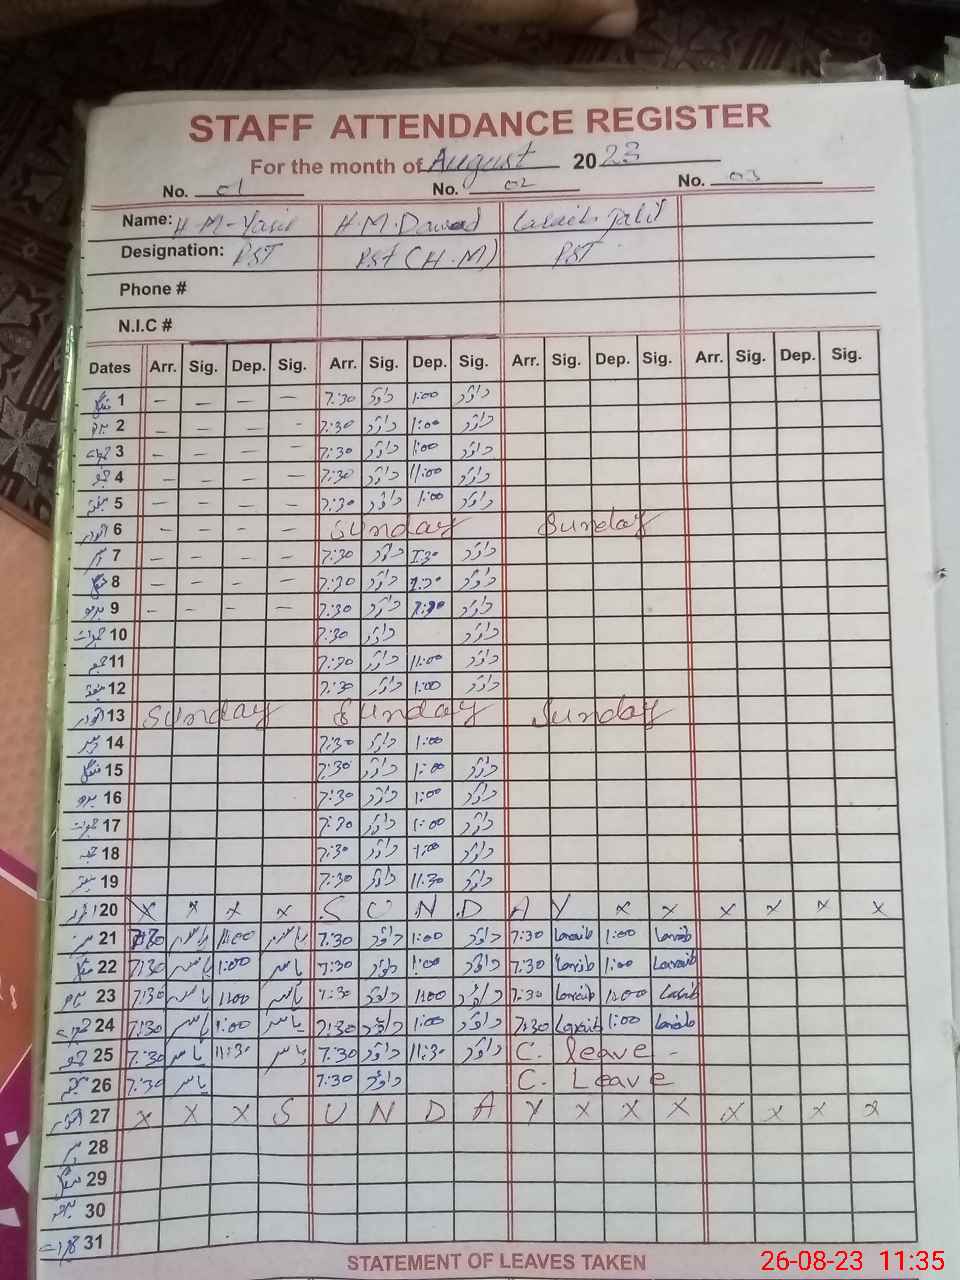 STAFF ATTENDANCE REGISTER
For the month of August 2023
No. 01 No. 02 No. 03
Name: H-M-Yasir H.M.Dawood Laraib Jalil
Designation: PST PST (H.M) PST
Phone #
N.I.C #
Dates Arr. Sig. Dep. Sig. Arr. Sig. Dep. Sig. Arr. Sig. Dep. Sig. Arr. Sig. Dep. Sig.
منگل 1 – – – – 7:30 داؤد 1:00 داؤد
بدھ 2 – – – – 7:30 داؤد 1:00 داؤد
جمعرات 3 – – – – 7:30 داؤد 1:00 داؤد
جمعہ 4 – – – – 7:30 داؤد 11:00 داؤد
ہفتہ 5 – – – – 7:30 داؤد 1:00 داؤد
اتوار 6 – – – – Sunday Sunday
پیر 7 – – – – 7:30 داؤد 1:30 داؤد
منگل 8 – – – – 7:30 داؤد داؤد
بدھ 9 – – – – 7:30 داؤد داؤد
جمعرات 10 7:30 داؤد داؤد
جمعہ 11 7:30 داؤد 11:00 داؤد
ہفتہ 12 7:30 داؤد 1:00 داؤد
اتوار 13 Sunday Sunday Sunday
پیر 14 7:30 داؤد 1:00
منگل 15 7:30 داؤد 1:00 داؤد
بدھ 16 7:30 داؤد 1:00 داؤد
جمعرات 17 7:30 داؤد 1:00 داؤد
جمعہ 18 7:30 داؤد داؤد
ہفتہ 19 7:30 داؤد 11:30 داؤد
اتوار 20 x x x x S U N D A Y x x x x x x
پیر 21 7:30 یاسر 1:00 یاسر 7:30 داؤد 1:00 داؤد 7:30 Laraib 1:00 Laraib
منگل 22 7:30 یاسر 1:00 یاسر 7:30 داؤد 1:00 داؤد 7:30 Laraib 1:00 Laraib
بدھ 23 7:30 یاسر یاسر 7:30 داؤد داؤد 7:30 Laraib Laraib
جمعرات 24 7:30 یاسر 1:00 یاسر 7:30 داؤد 1:00 داؤد 7:30 Laraib 1:00 Laraib
جمعہ 25 7:30 یاسر 11:30 یاسر 7:30 داؤد 11:30 داؤد C. leave -
ہفتہ 26 7:30 یاسر 7:30 داؤد C. Leave
اتوار 27 x x x S U N D A Y x x x x x x x
پیر 28
منگل 29
بدھ 30
جمعرات 31
STATEMENT OF LEAVES TAKEN
26-08-23 11:35